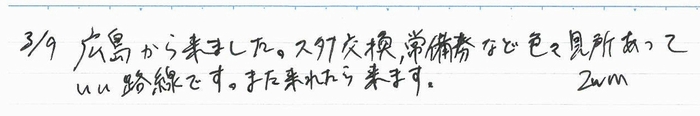 3/9 広島から来ました。スタフ交換,常備券など色々見所あって
いい路線です。また来れたら来ます。 2wm